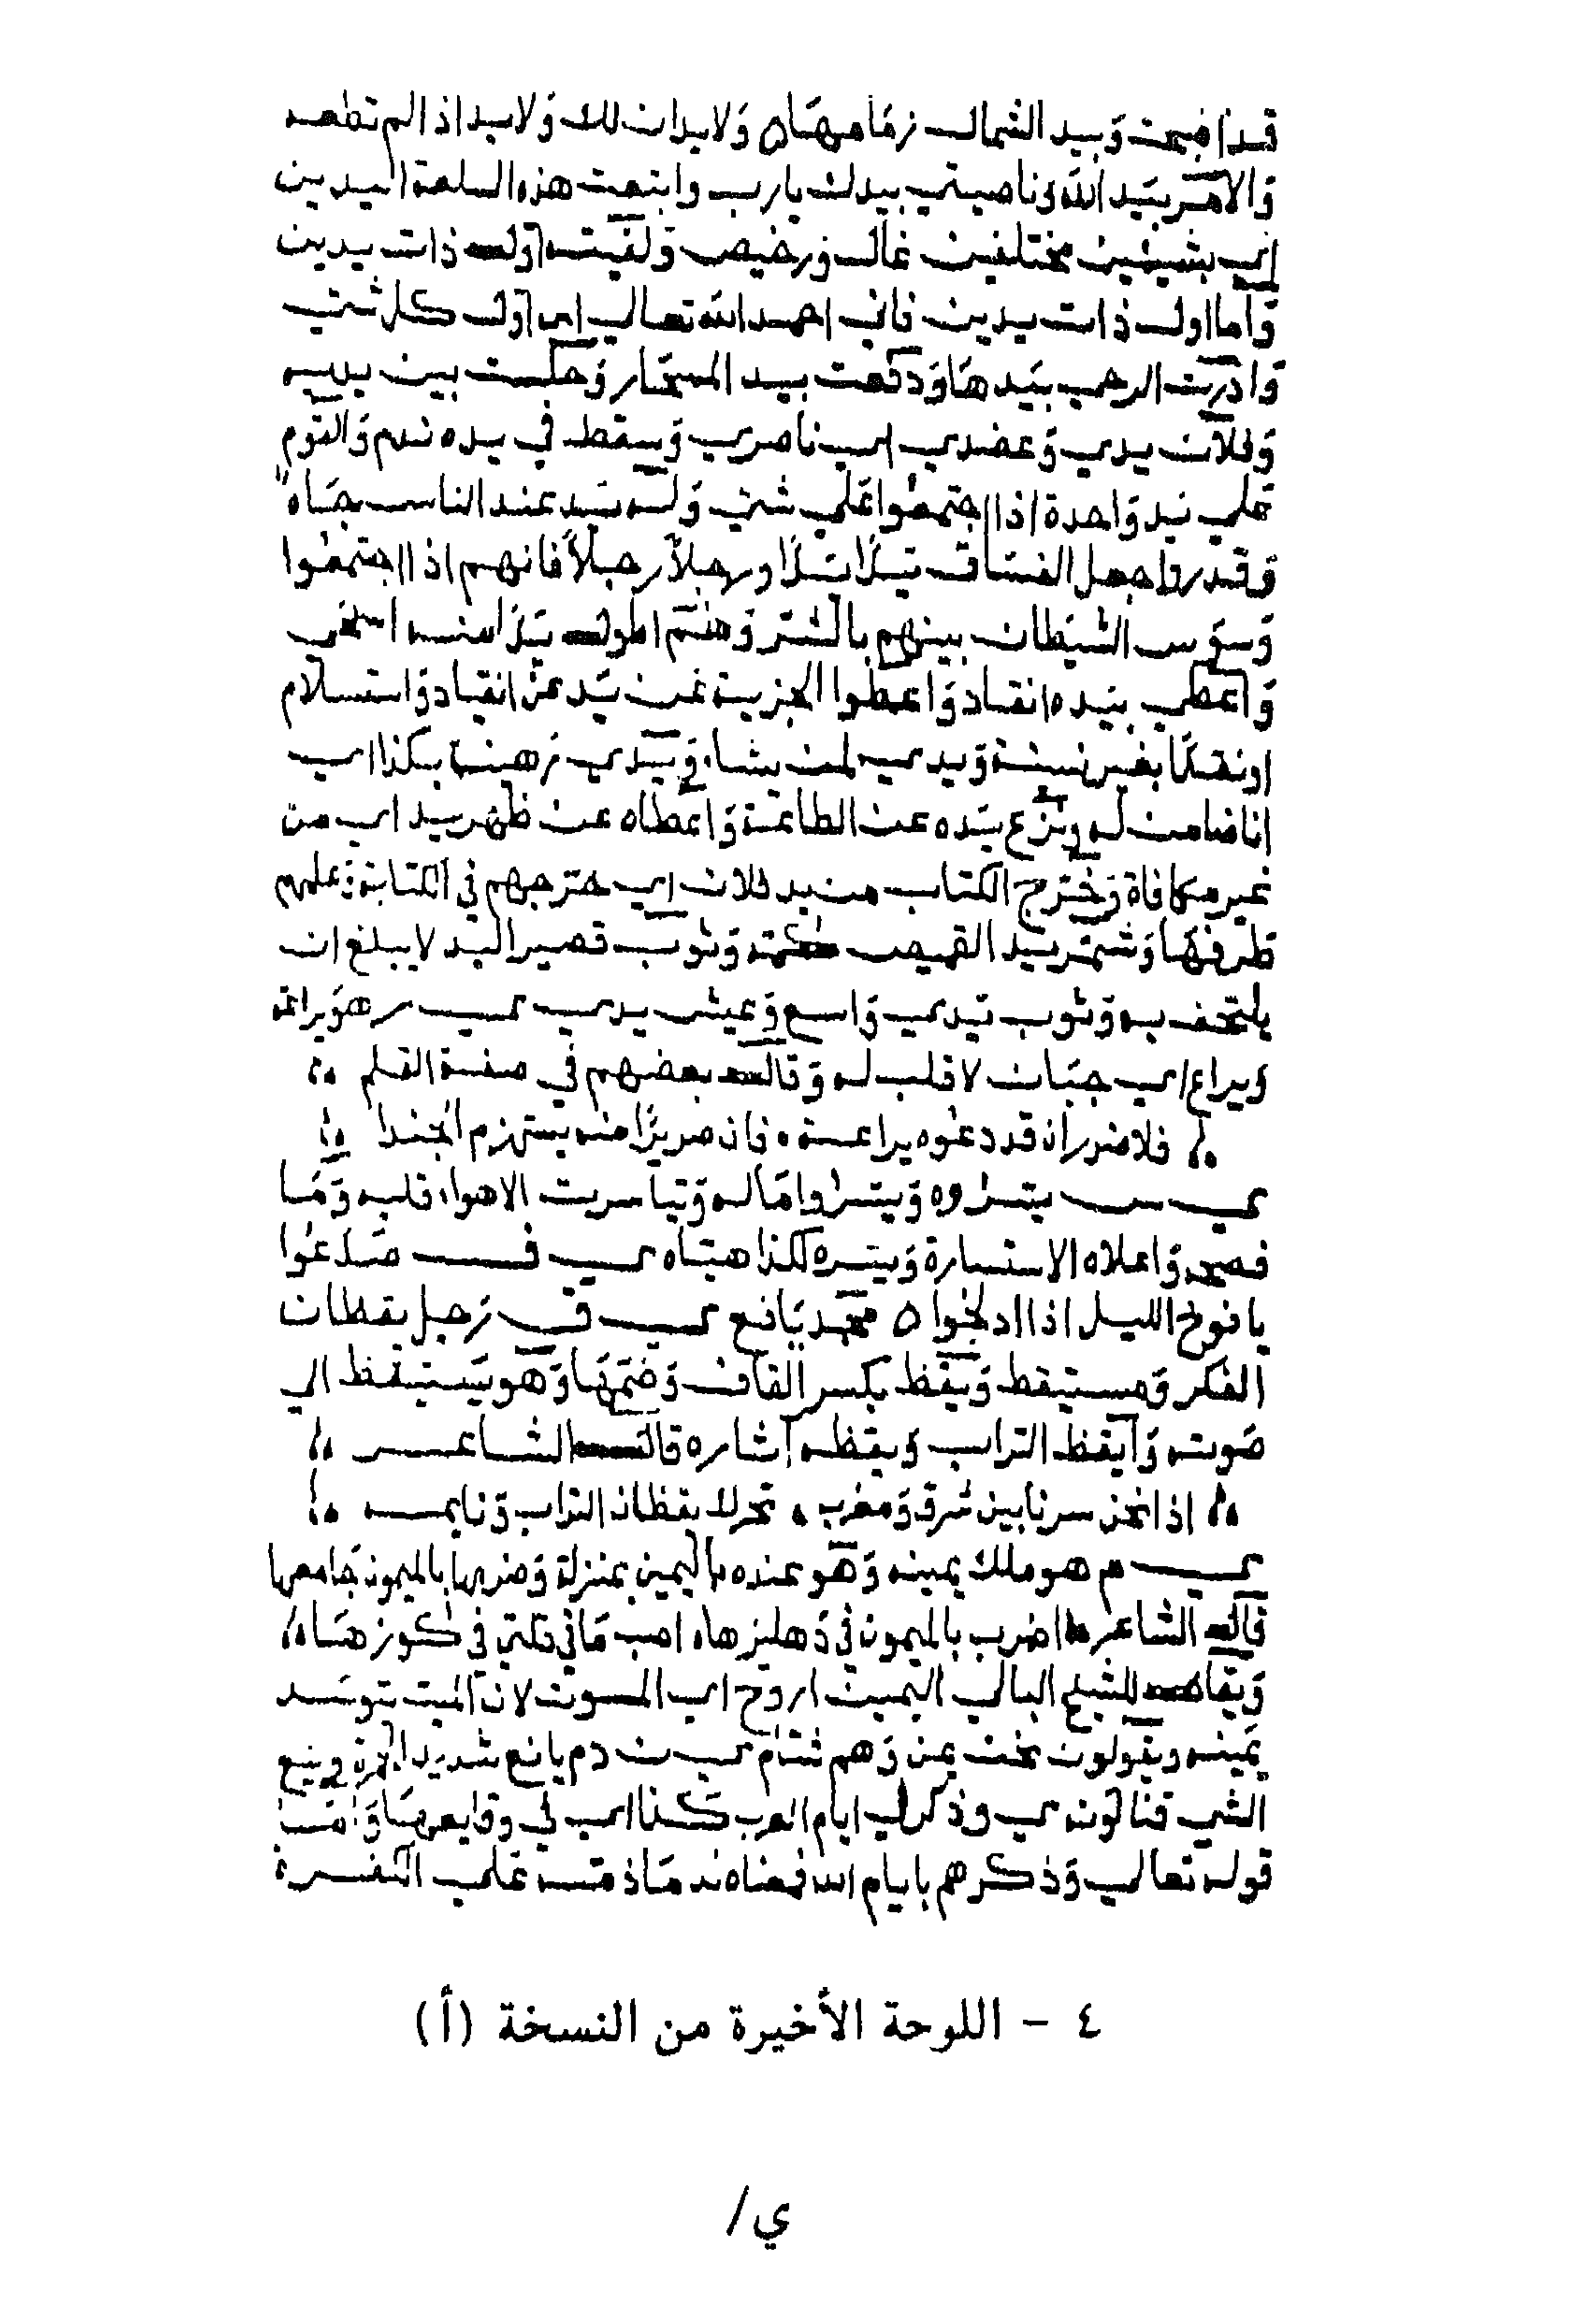 قد اضبحت وبيد الشمال زمامها ٥ ولا يدان لك ولا يد اذا لم تطعه
والامر بيد الله وناصيتي بيدك يارب وابتعت هذه السلعة اليدين
اي بشيئين مختلفين غال ورخيص ولقيته اول ذات يدين
واما اول ذات يدين فاني احمد الله تعالي اي اول كل شي
وادرت الرحي بيدها ودفعت بيد المسحار وجلست بين يديه
وفلان يدي وعضدي اي ناصري وسقط في يده ندم والقوم
علي يد واحدة اذا اجتمعوا علي شي وله يد عند الناس جاه
وقد روا جعل الفساق يدًا يدًا ورجلاً رجلاً فانهم اذا اجتمعوا
وسوس الشيطان بينهم بالشر وهنم اطول يدًا منه اسخي
واعطي بيده انقاد واعطوا الجزية عن يد عن انقياد واستسلام
او نقدًا بغير نسئة ويدي لمن يشاء ويدي رهينة بكذا اي
انا ضامن له ونزع يده عن الطاعة واعطاه عن ظهر يد اي من
غير مكافاة وخرج الكتاب من يد فلان اي خرجهم في الكتابة وعلمهم
طرفها وشمر يد القميص كمه وثوب قصير اليد لا يبلغ ان
يلتحف به وثوب يدي واسع وعيش يدي ي ر هو يراعة
ويراع اي جبان لا قلب له وقال بعضهم في صفة القلم
فلا ضر ران قد دعوه يراعة ، فان صريرًا منه يستهزم الجندا
ي س يتسروه ويتسروا ماله وتياسرت الاهواء قلبه وما
فصحه واعلاه الاستسارة ويسره لكذا هياه ي ف صدعوا
يافوخ الليل اذا ادلجوا ٥ يافع ي ق رجل يقظان
الفكر ومستيقظ ويقظ بكسر القاف وضمها وهو يستيقظ الي
صوته وايقظ التراب ويقظه اثاره قال الشاعر
اذا نحن سرنا بين شرق ومغرب ، تحرك يقظان التراب ونايمه
ي م هو ملك يمينه وهو عنده باليمين بمنزلة وضربها بالميمون جامعها
قال الشاعر اضرب بالميمون في دهليزها ، اصب ما في قلتي في كوزها
ويقال للشيخ البالي اليمين اروح اي الموت لان الميت يتوسد
يمينه ويقولون نحن يمن وهم شام ي ن دم يانع شديد الحمرة وينع
الشي قنالونه ي و ذكر في ايام العرب كذا اي في وقايعها واما
قوله تعالي وذكرهم بايام الله فمعناه ندماذمه علي الكفرة
٤ - اللوحة الأخيرة من النسخة (أ)
ي/